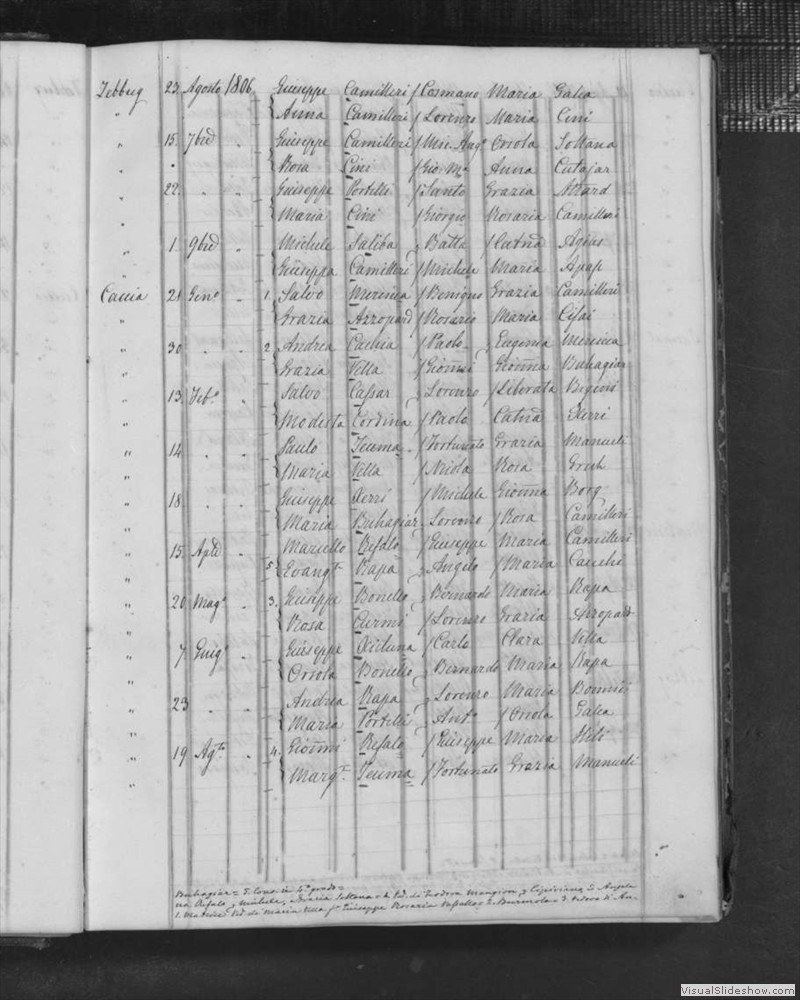 Zebbug 23. Agosto 1806. Giuseppe Camilleri / Cosmano Maria Galea
" Anna Camilleri / Lorenzo Maria Cini
" 15. 7bre " Giuseppe Camilleri / Orsola Soltana
" Rosa Cini / Gio: Mª Anna Cutajar
" 22. " " Giuseppe Portelli / Santo Grazia Attard
" Maria Cini / Giorgio Rosaria Camilleri
" 1. 9bre " Michele Saliba Batta / Catnª Agius
" Giuseppa Camilleri / Michele Maria Apap
Caccia 21 Genº " 1. Salvo Mercieca / Benigno Grazia Camilleri
" Grazia Azzopard / Rosario Maria
" 30 " " 2 Andrea Cachia / Paolo Eugenia Mercieca
" Grazia Vella / Gioñni Gioñna Buhagiar
" 13. Febº " Salvo Cassar Lorenzo / Liberata
" Modesta Cordina / Paolo Catnª Xerri
" 14 " " Paulo Teuma / Fortunato Grazia Manueli
" Maria Vella / Nicola Rosa Grech
" 18 " " Giuseppe Xerri / Michele Gioñna Borg
" Maria Buhagiar Lorenzo / Rosa Camilleri
" 15. Aple " Marcello Refalo / Giuseppe Maria Camilleri
" 5 Evangª Rapa Angelo / Maria Cauchi
" 20 Magº " 3. Giuseppe Bonello Bernardo Maria Rapa
" Rosa Curmi / Lorenzo Grazia Azzopard
" 7. Giugº " Giuseppe Xicluna / Carlo Clara Vella
" Orsola Bonello Bernardo Maria Rapa
" 23 " " Andrea Rapa Lorenzo Maria Bonnici
" Maria Portelli Antº / Orsola Galea
" 19 Agto " 4. Gioñni Refalo / Giuseppe Maria
" Margª Teuma / Fortunato Grazia Manueli
Buhagiar = 5. Cons. in 4º grado =
na Refalo, Michele, Grazia Soltana Ved. di Teodora Mangion, Cipriano, Angela
1. Ved. di Maria Vella Giuseppe Rosaria Vassallo 2. Burmola 3. Vedova d' An-
VisualSlideshow.com